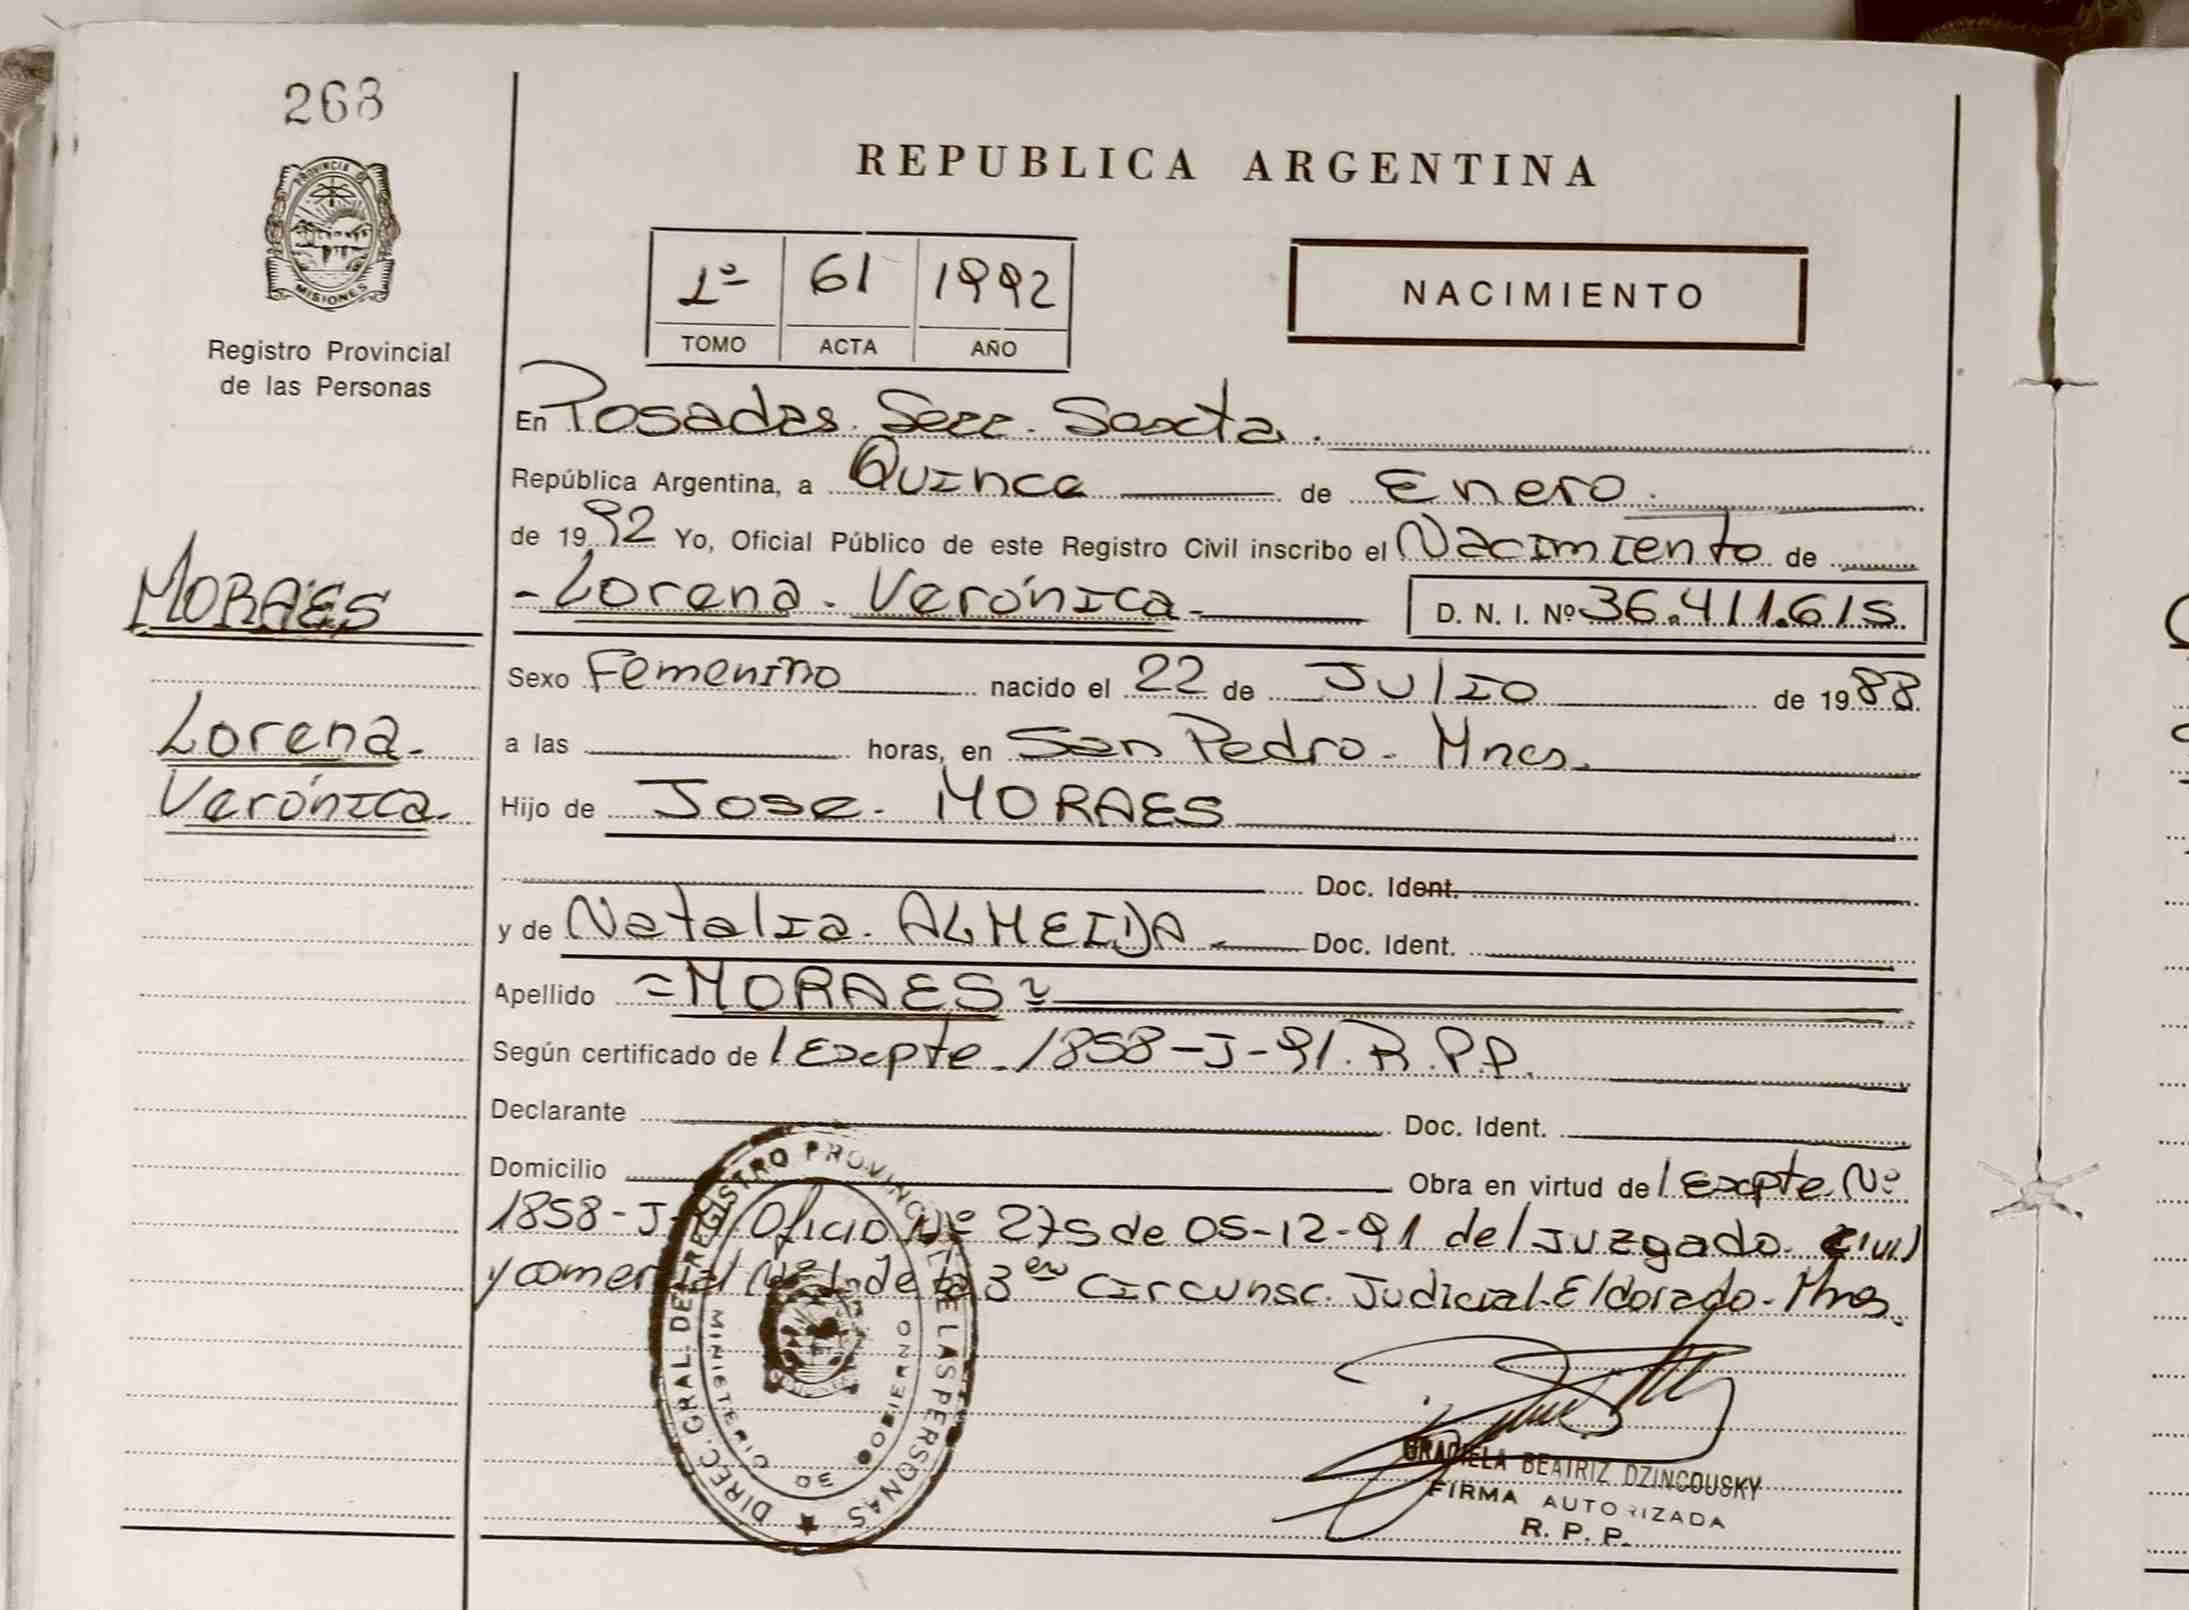 268
PROVINCIA DE
MISIONES
Registro Provincial
de las Personas
REPUBLICA ARGENTINA
1º 61 1992
TOMO ACTA AÑO
NACIMIENTO
En Posadas. Secc. Sexta.
República Argentina, a Quince de Enero.
de 1992 Yo, Oficial Público de este Registro Civil inscribo el Nacimiento de
- Lorena - Verónica - D. N. I. Nº 36.411.615
MORAES
Lorena-
Verónica-
Sexo Femenino nacido el 22 de Julio de 1988
a las horas, en San Pedro - Mnes.
Hijo de Jose - MORAES
Doc. Ident.
y de Natalia - ALMEIDA - Doc. Ident.
Apellido =MORAES=
Según certificado de l Expte. 1858-J-91. R.P.P.
Declarante Doc. Ident.
Domicilio Obra en virtud del Expte. Nº
1858-J- Oficio Nº 275 de 05-12-91 del Juzgado Civil
y comercial Nº 1 de la 3era Circunsc. Judicial. Eldorado - Mnes.
DIREC. GRAL. DEL REGISTRO PROVINCIAL DE LAS PERSONAS
MINISTERIO DE GOBIERNO
GRACIELA BEATRIZ DZINCOUSKY
FIRMA AUTORIZADA
R. P. P.